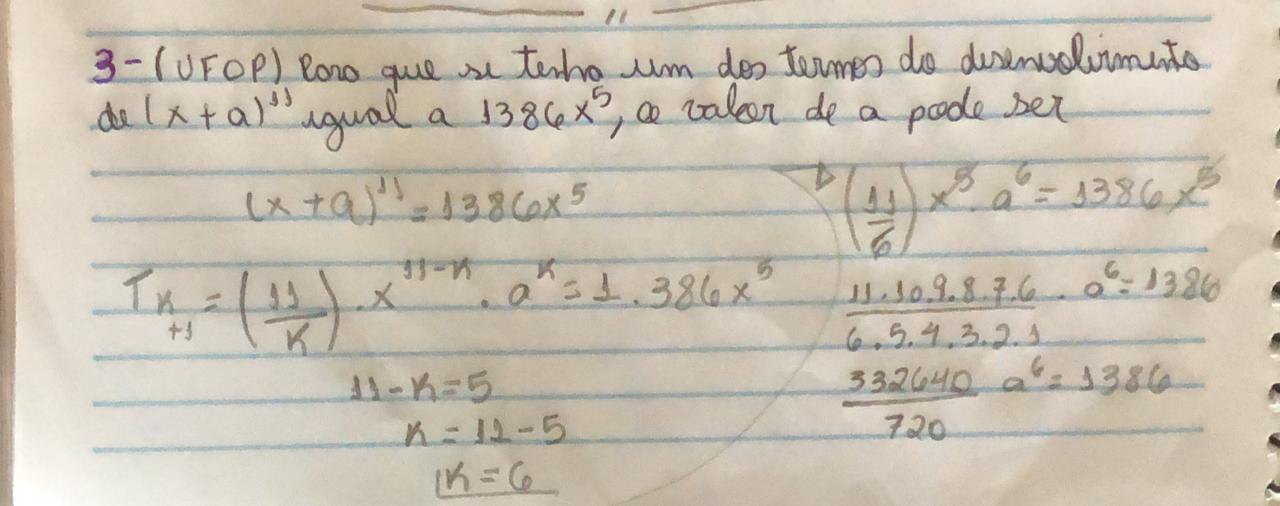 3-(UFOP) Para que se tenha um dos termos do desenvolvimento
de (x+a)¹¹ igual a 1386x⁵, o valor de a pode ser
(x+a)¹¹=1386x⁵
T_{K+1} = (11/K) . x^{11-K} . a^K = 1.386x⁵
11-K=5
K=11-5
K=6
(11/6) x⁵ . a⁶ = 1386x⁵
11.10.9.8.7.6 . a⁶ = 1386
6.5.4.3.2.1
332640 a⁶ = 1386
720